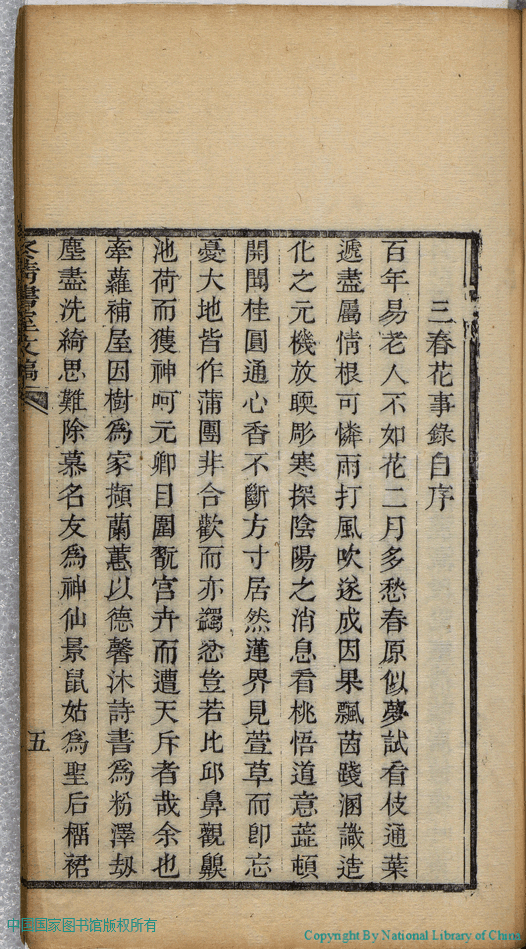 三春花事錄自序
百年易老人不如花二月多愁春原似夢試看伎通葉
遞盡屬情根可憐雨打風吹遂成因果飄茵踐溷識造
化之元機放暎彫寒探陰陽之消息看桃悟道意蕋頓
開聞桂圓通心香不斷方寸居然蓮界見萱草而卽忘
憂大地皆作蒲團非合歡而亦蠲忿豈若比邱鼻觀躺
池荷而獲神呵元卿目圍翫宮卉而遭天斥者哉余也
牽蘿補屋因樹爲家擷蘭蕙以德馨沐詩書爲粉澤刼
塵盡洗綺思難除慕名友爲神仙景鼠姑爲聖后榴裙
書室文稿
五
中国国家图书馆版权所有
Copyright By National Library of China